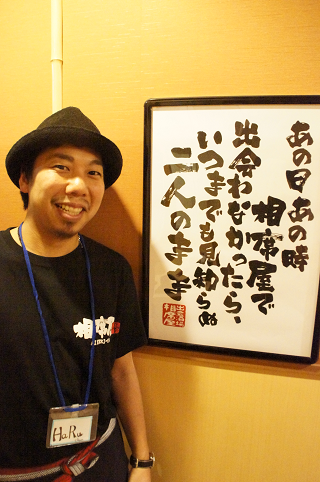 あの日あの時
相席屋で
出会わなかったら、
いつまでも見知らぬ
二人のまま
相席屋
HaRu